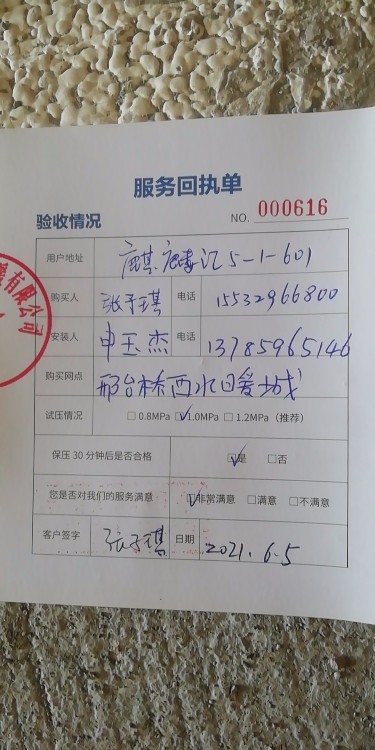 服务回执单
验收情况 NO. 000616
用户地址 麒麟汇5-1-601
购买人 张子琪 电话 15532966800
安装人 申玉杰 电话 13785965146
购买网点 邢台桥西水回爱城
试压情况 □0.8MPa ☑1.0MPa □1.2MPa（推荐）
保压30分钟后是否合格 ☑是 □否
您是否对我们的服务满意 ☑非常满意 □满意 □不满意
客户签字 张子琪 日期 2021.6.5
有限公司